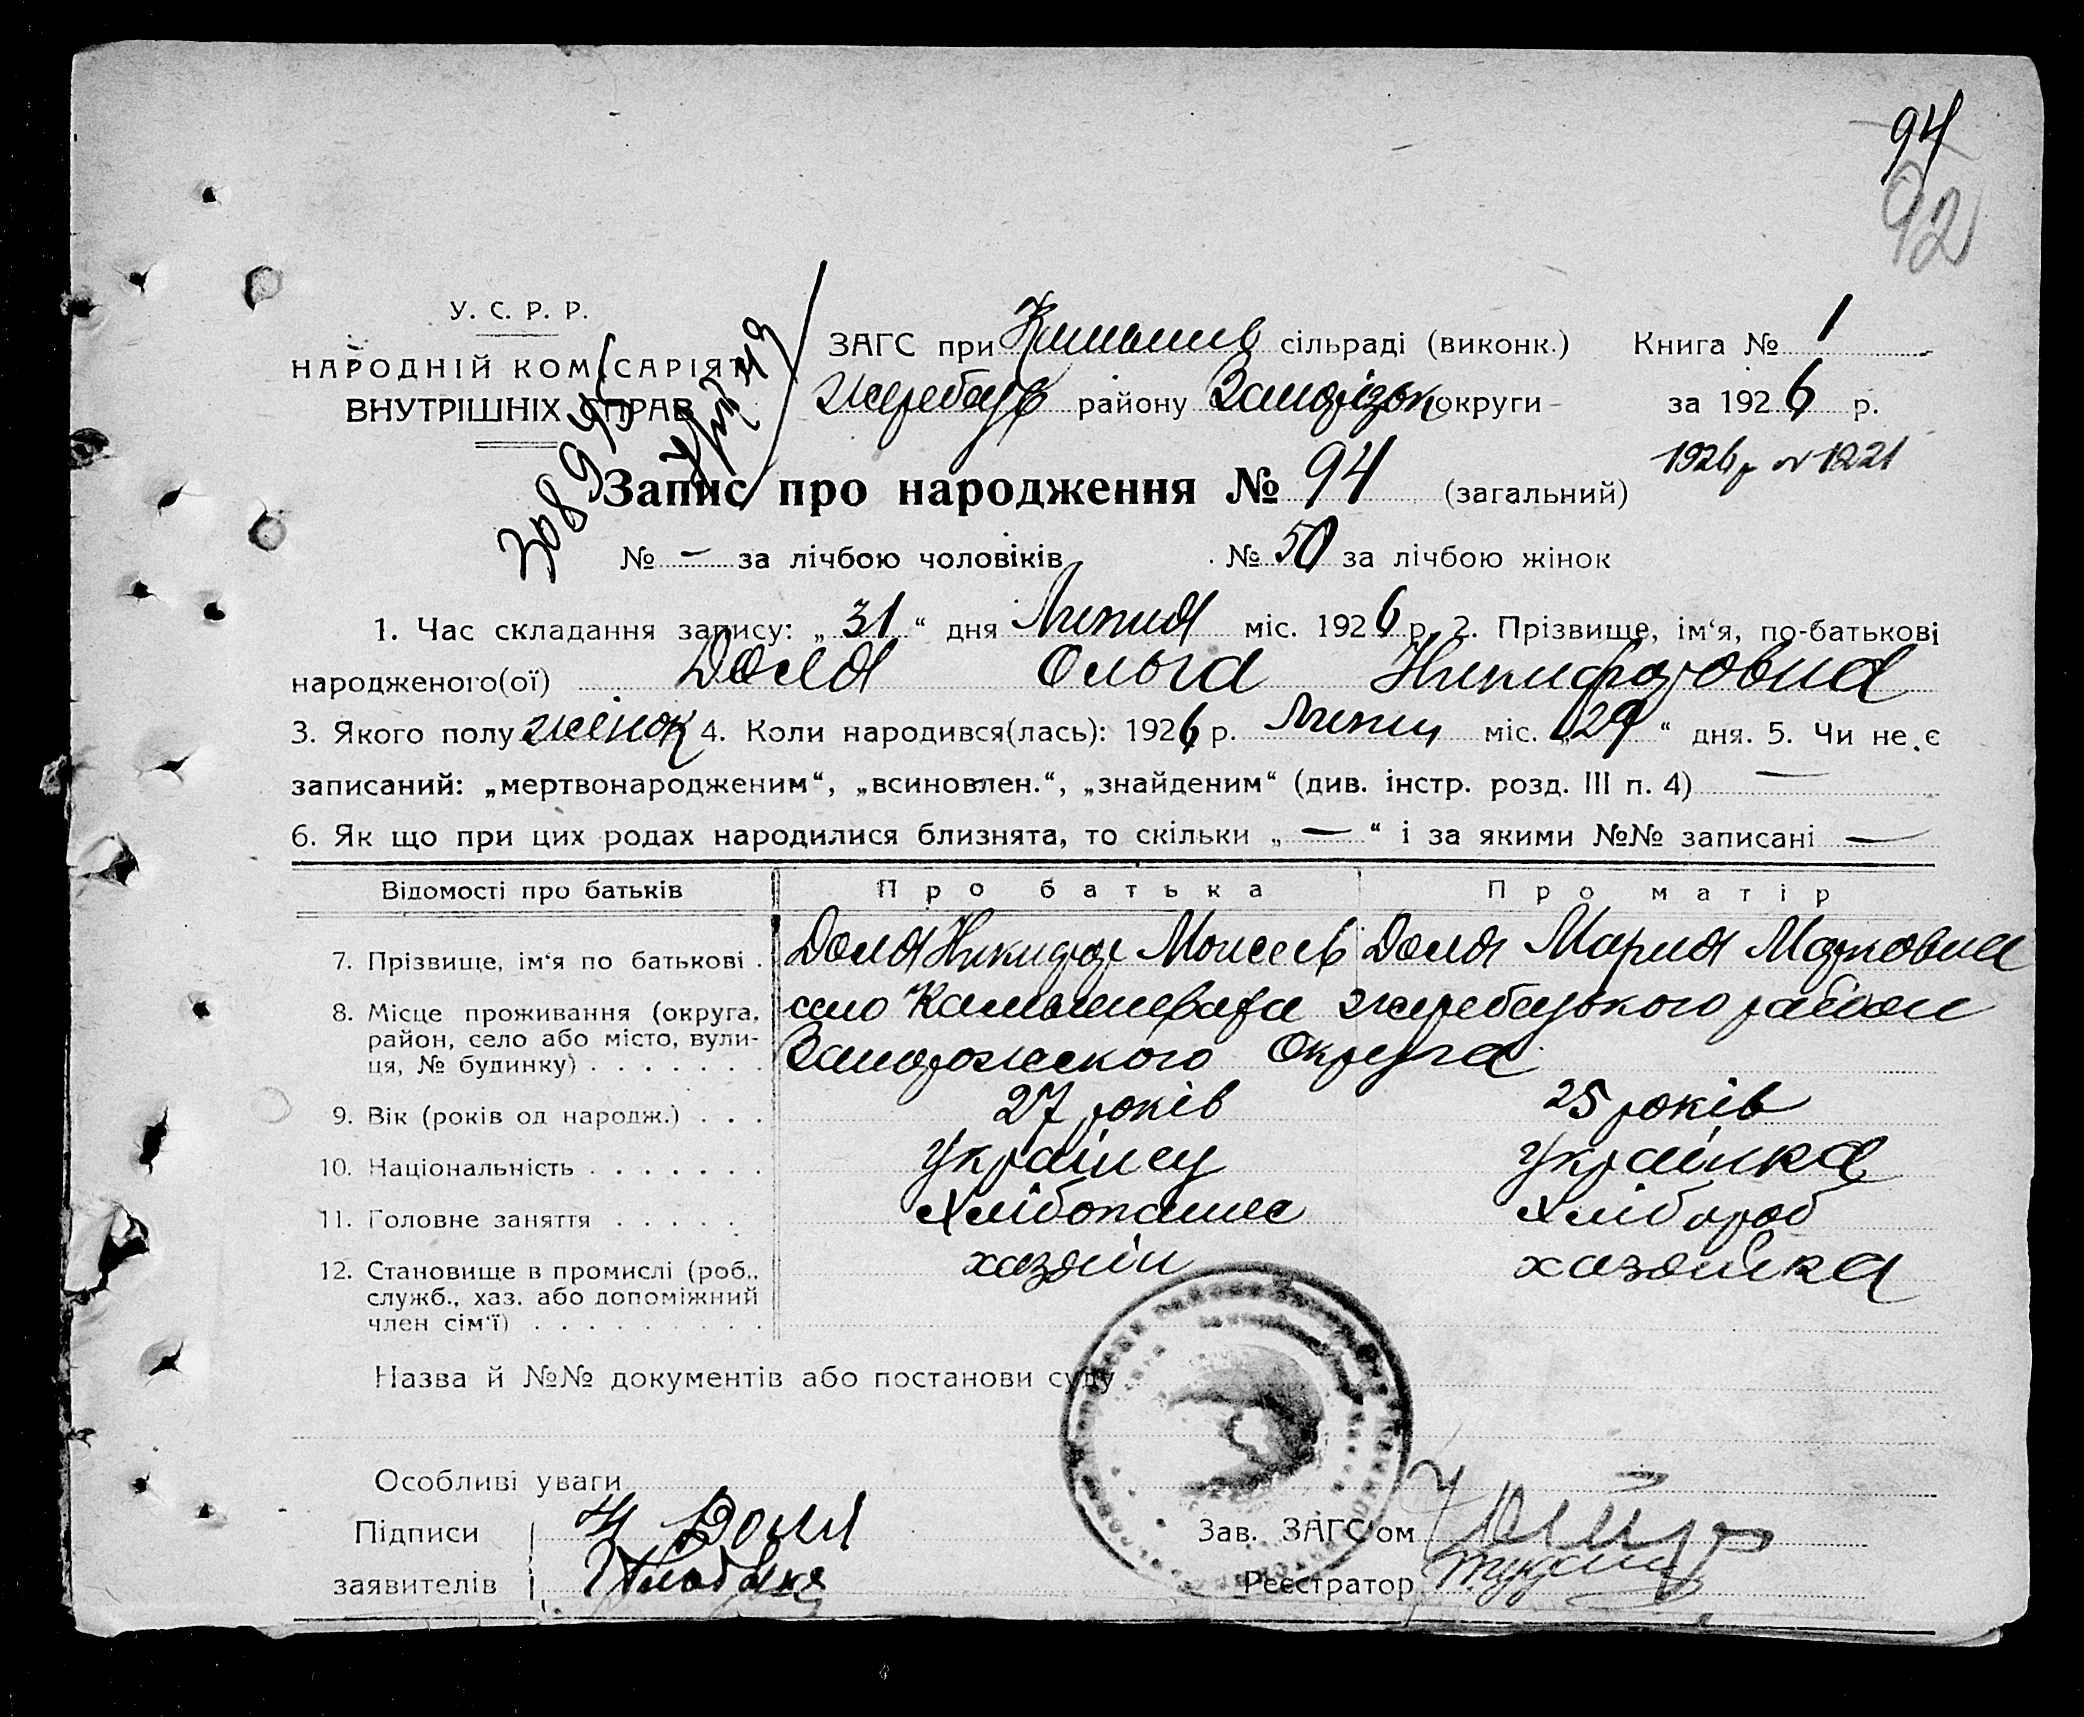 94
92
У. С. Р. Р.
НАРОДНІЙ КОМІСАРІЯТ
ВНУТРІШНІХ СПРАВ
ЗАГС при сільраді (виконк.) Книга № 1
жеребец району Запорізьк округи за 1926 р.
1926 р № 1221
Запис про народження № 94 (загальний)
№ — за лічбою чоловіків № 50 за лічбою жінок
1. Час складання запису: „31“ дня Липня міс. 1926 р. 2. Прізвище, ім‘я, по-батькові
народженого(ої) Доля Ольга Никифоровна
3. Якого полу жінок 4. Коли народився(лась): 1926 р. Липня міс. „29“ дня. 5. Чи не є
записаний: „мертвонародженим“, „всиновлен.“, „знайденим“ (див. інстр. розд. III п. 4) —
6. Як що при цих родах народилися близнята, то скільки „—“ і за якими №№ записані —
Відомості про батьків Про батька Про матір
7. Прізвище, ім‘я по батькові . Доля Никифор Моисеев Доля Мария Марковна
8. Місце проживання (округа, село Камышеваха жеребецького район
район, село або місто, вули- Запорожского Округа
ця, № будинку) . . . . . . .
9. Вік (років од народж.) . . . 27 років 25 років
10. Національність . . . . . . . Українец Українка
11. Головне заняття . . . . . Хлібопашес Хлібороб
12. Становище в промислі (роб., хазяїн хазяйка
служб., хаз. або допоміжний
член сім‘ї) . . . . . . . . .
Назва й №№ документів або постанови суду
Особливі уваги
Підписи Н Доля Зав. ЗАГС‘ом
заявителів Реєстратор